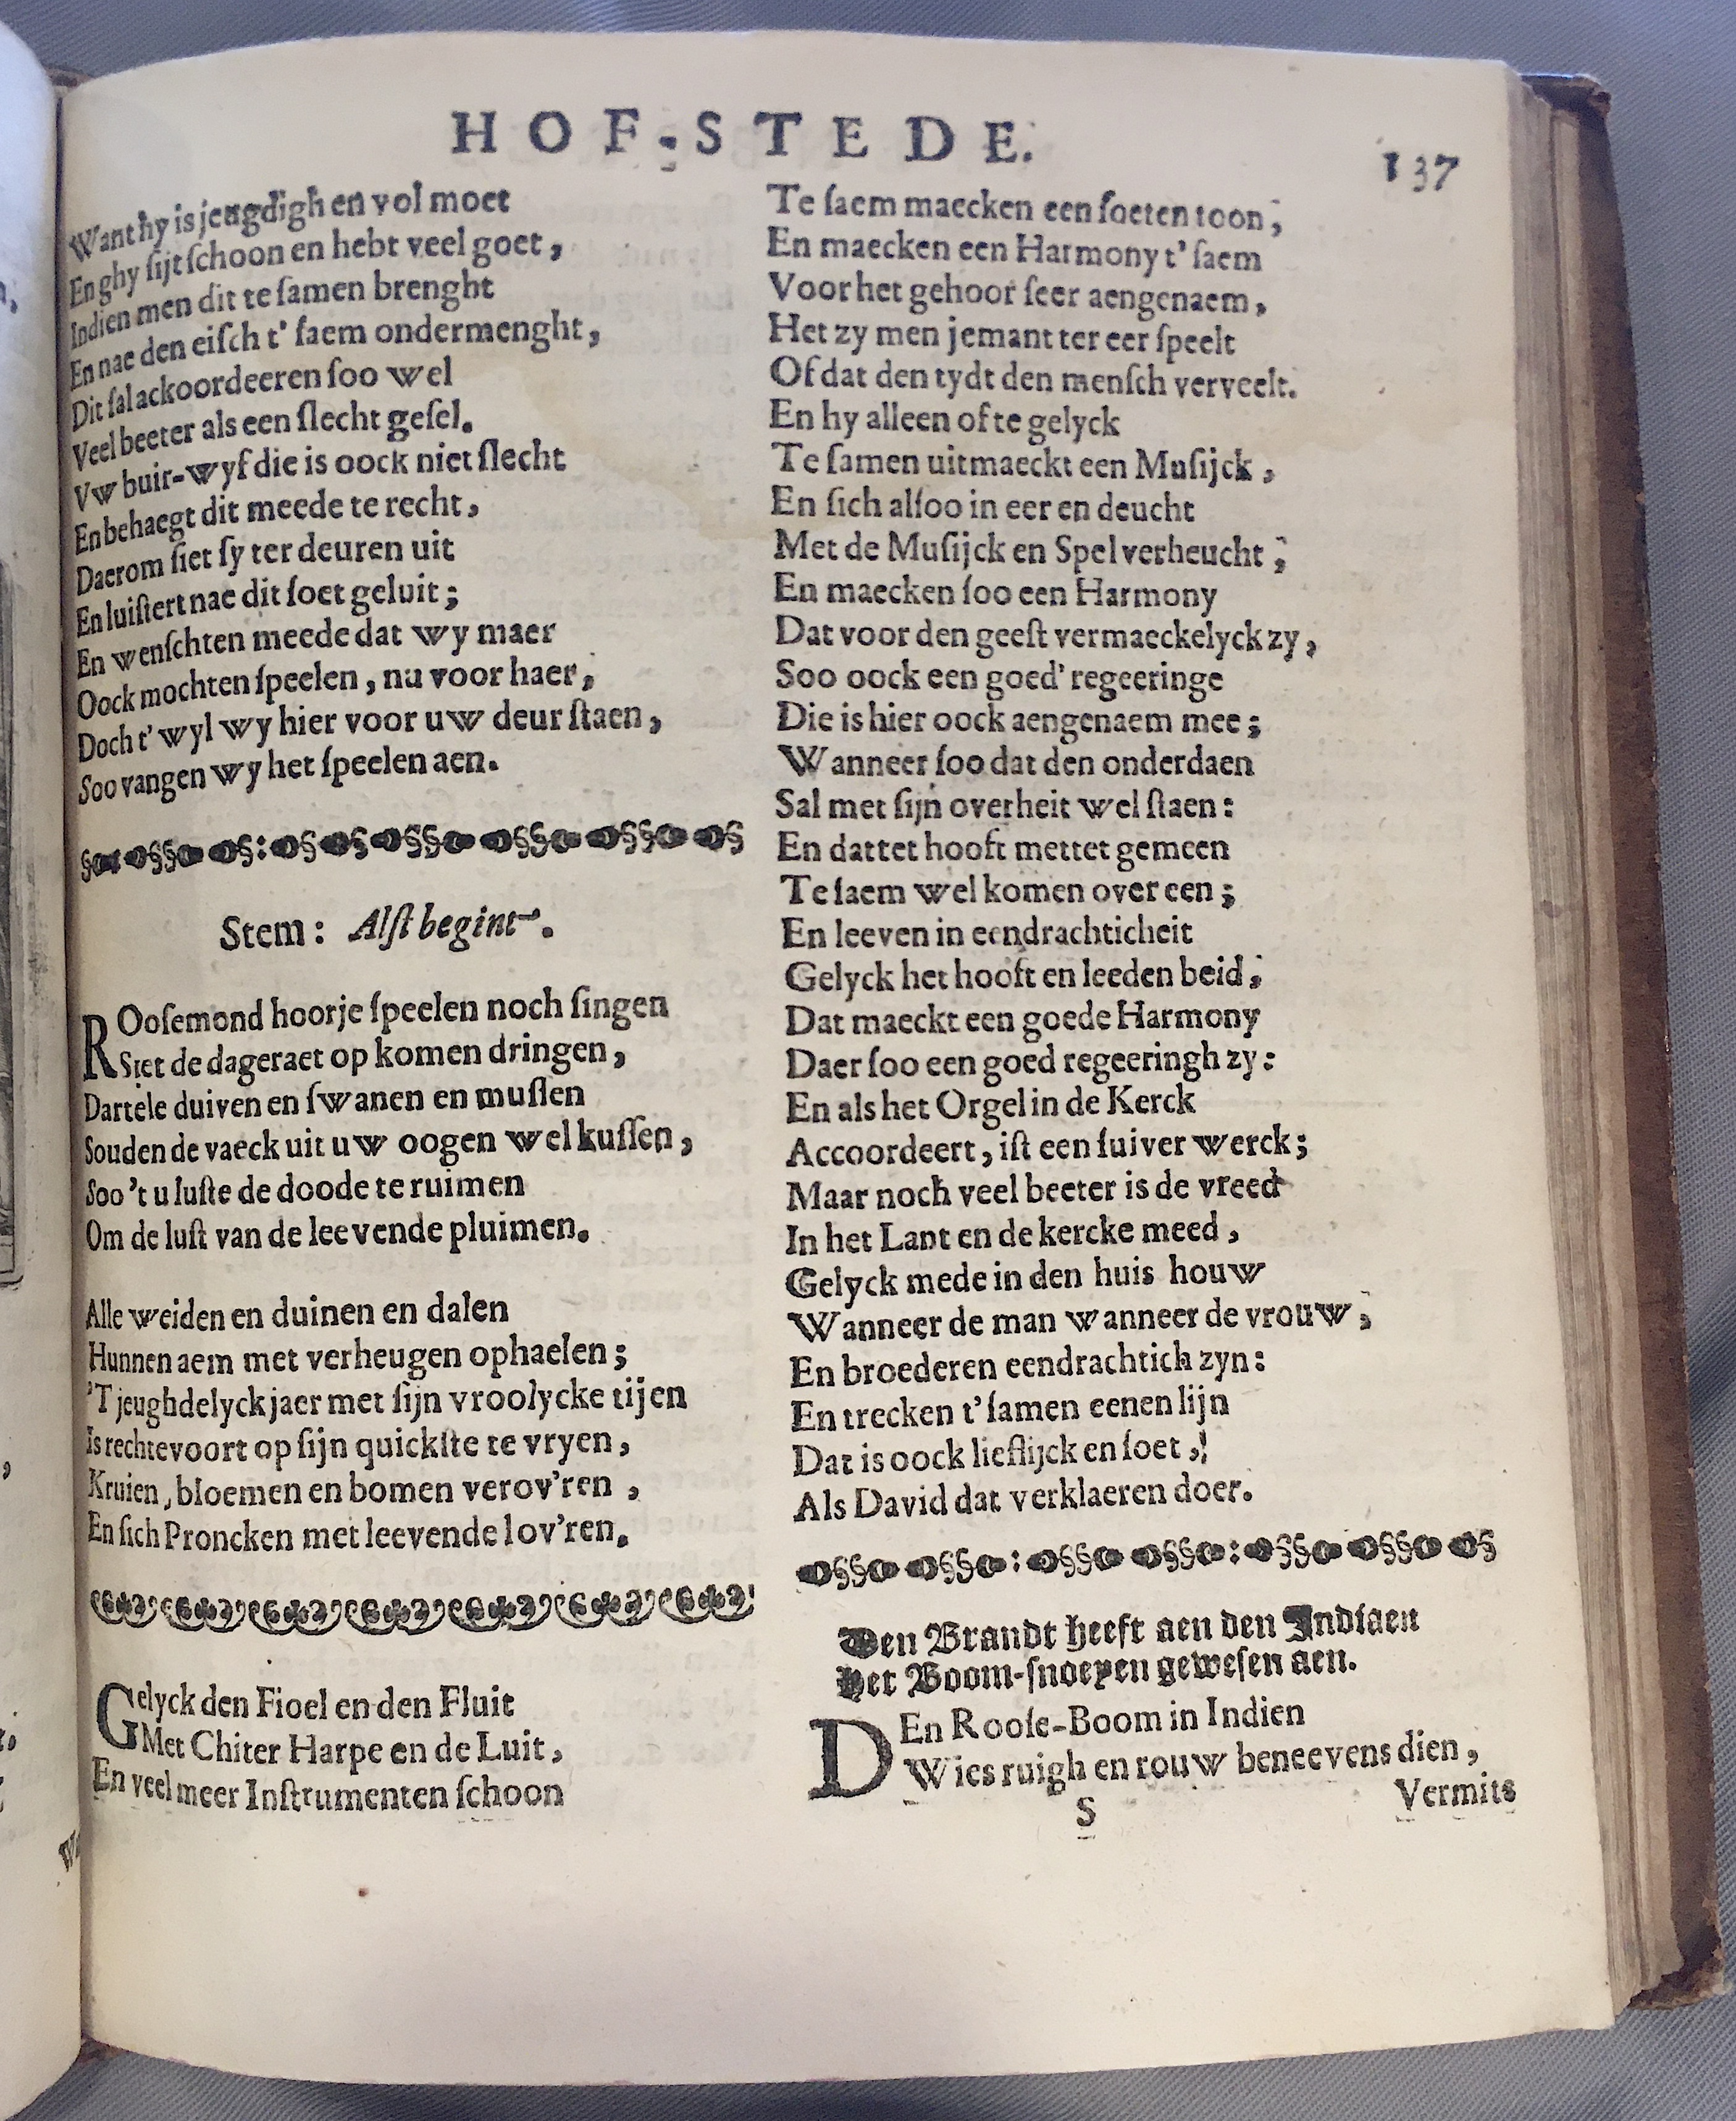 HOF-STEDE.
137
Want hy is jeugdigh en vol moet
En ghy ſijt ſchoon en hebt veel goet,
Indien men dit te ſamen brenght
En nae den eiſch t' ſaem ondermenght,
Dit ſal ackoordeeren ſoo wel
Veel beeter als een ſlecht geſel.
Vw buir-wyf die is oock niet ſlecht
En behaegt dit meede te recht,
Daerom ſiet ſy ter deuren uit
En luiſtert nae dit ſoet geluit;
En wenſchten meede dat wy maer
Oock mochten ſpeelen, nu voor haer,
Doch t' wyl wy hier voor uw deur ſtaen,
Soo vangen wy het ſpeelen aen.
Stem: Alſt begint.
ROoſemond hoorje ſpeelen noch ſingen
Siet de dageraet op komen dringen,
Dartele duiven en ſwanen en muſſen
Souden de vaeck uit uw oogen wel kuſſen,
Soo 't u luſte de doode te ruimen
Om de luſt van de leevende pluimen.
Alle weiden en duinen en dalen
Hunnen aem met verheugen ophaelen;
'T jeughdelyck jaer met ſijn vroolycke tijen
Is rechtevoort op ſijn quickſte te vryen,
Kruien, bloemen en bomen verov'ren,
En ſich Proncken met leevende lov'ren.
Gelyck den Fioel en den Fluit
Met Chiter Harpe en de Luit,
En veel meer Inſtrumenten ſchoon
Te ſaem maecken een ſoeten toon;
En maecken een Harmony t' ſaem
Voor het gehoor ſeer aengenaem,
Het zy men jemant ter eer ſpeelt
Of dat den tydt den menſch verveelt.
En hy alleen ofte gelyck
Te ſamen uitmaeckt een Muſijck,
En ſich alſoo in eer en deucht
Met de Muſijck en Spel verheucht;
En maecken ſoo een Harmony
Dat voor den geeſt vermaeckelyck zy,
Soo oock een goed' regeeringe
Die is hier oock aengenaem mee;
Wanneer ſoo dat den onderdaen
Sal met ſijn overheit wel ſtaen:
En dattet hooft mettet gemeen
Te ſaem wel komen over een;
En leeven in eendrachticheit
Gelyck het hooft en leeden beid,
Dat maeckt een goede Harmony
Daer ſoo een goed regeeringh zy:
En als het Orgel in de Kerck
Accoordeert, iſt een ſuiver werck;
Maar noch veel beeter is de vreed
In het Lant en de kercke meed,
Gelyck mede in den huis houw
Wanneer de man wanneer de vrouw,
En broederen eendrachtich zyn:
En trecken t' ſamen eenen lijn
Dat is oock lieflijck en ſoet,!
Als David dat verklaeren doet.
Den Brandt heeft aen den Indiaen
Het Boom-ſnoeyen geweſen aen.
DEn Rooſe-Boom in Indien
Wies ruigh en rouw beneevens dien,
S
Vermits